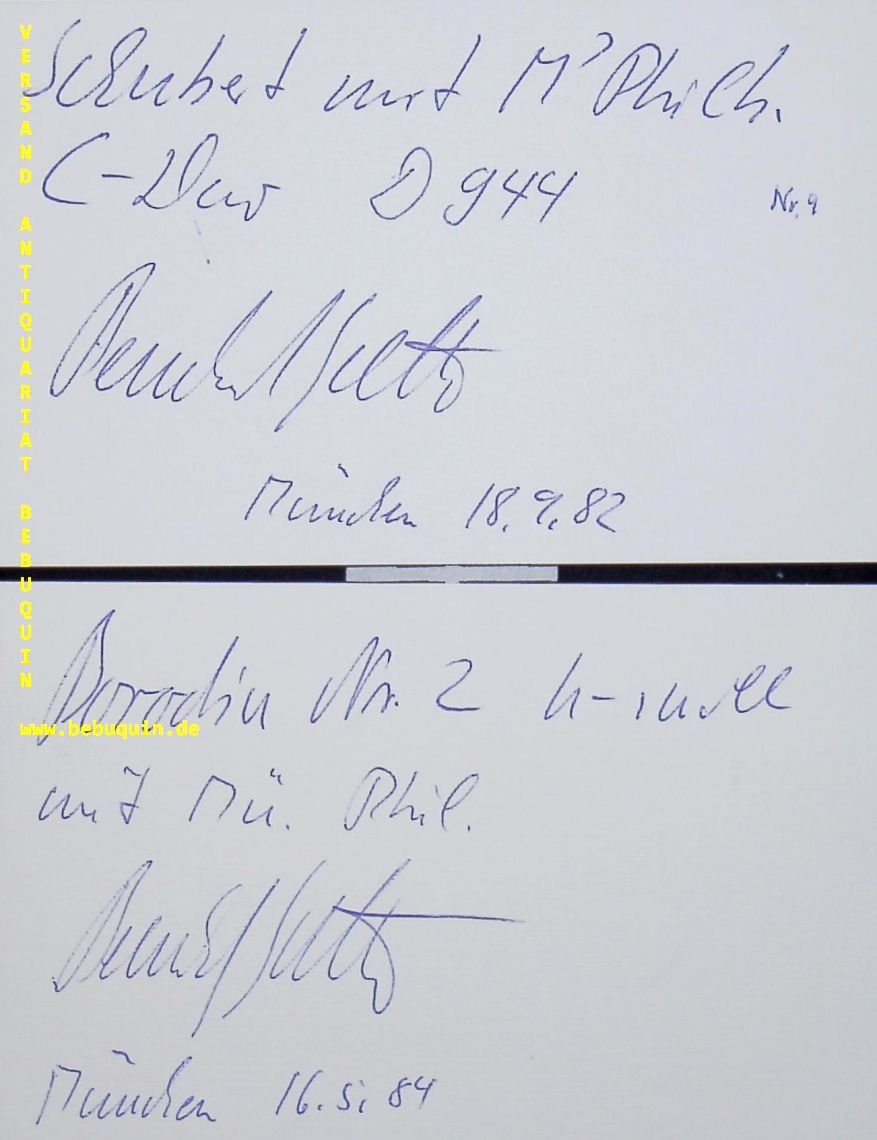 VERSAND ANTIQUARIAT BEBUQUIN
Schubert mit M'Phil h.
C-Dur D 944
Nr. 9
München 18.9.82
Borodin Nr. 2 h-moll
www.bebuquin.de
mit Mü. Phil.
München 16.5.84